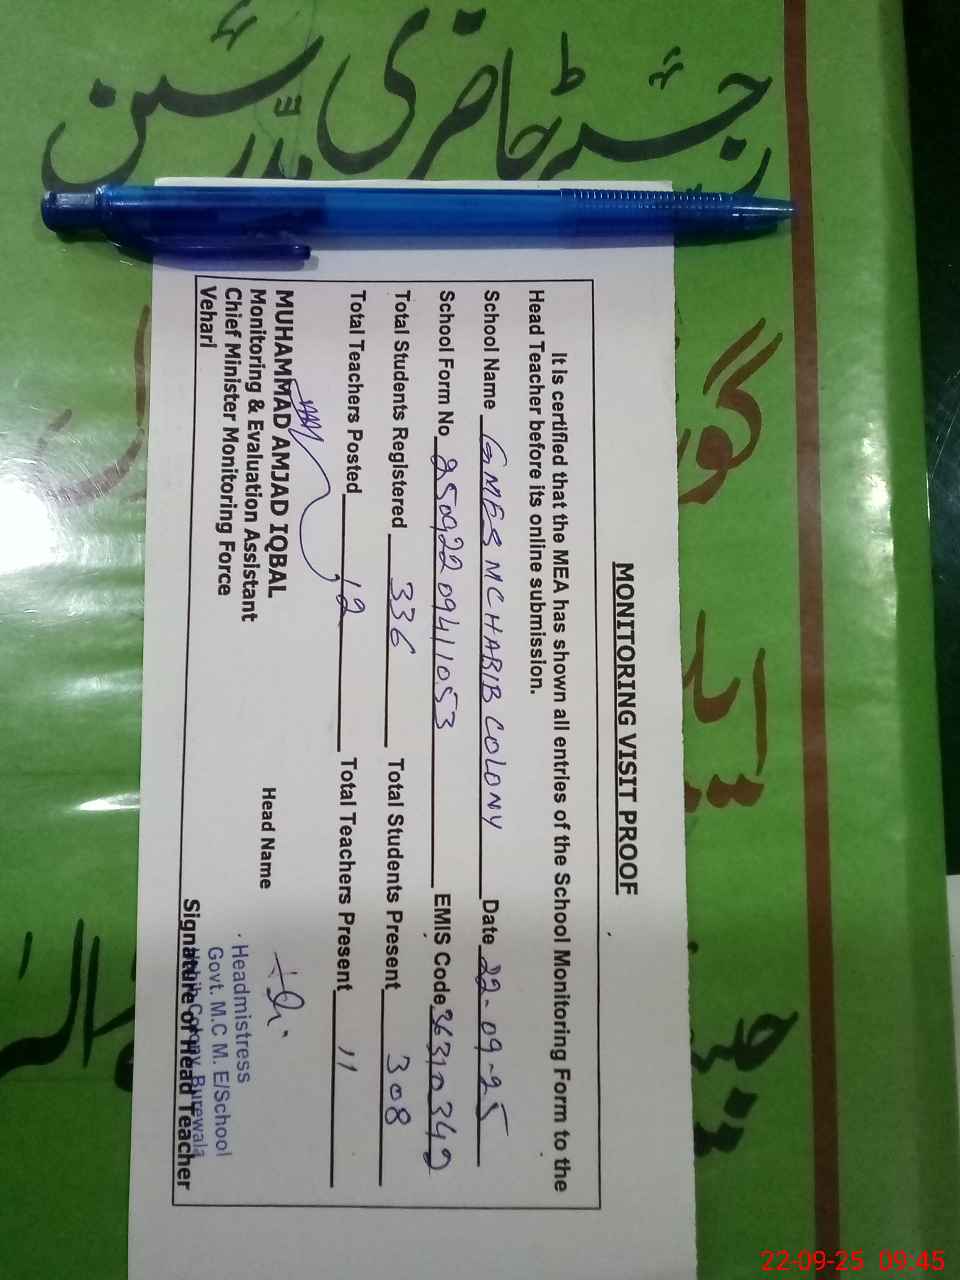 رجسٹر حاضری مدرسین
MONITORING VISIT PROOF
It is certified that the MEA has shown all entries of the School Monitoring Form to the
Head Teacher before its online submission.
School Name GMES MC HABIB COLONY Date 22-09-25
School Form No 25092209411053 EMIS Code 36310342
Total Students Registered 336 Total Students Present 308
Total Teachers Posted 12 Total Teachers Present 11
MUHAMMAD AMJAD IQBAL
Monitoring & Evaluation Assistant
Chief Minister Monitoring Force
Vehari
Head Name
Headmistress
Govt. M.C M. E/School
Habib Colony, Burewala
Signature of Head Teacher
22-09-25 09:45